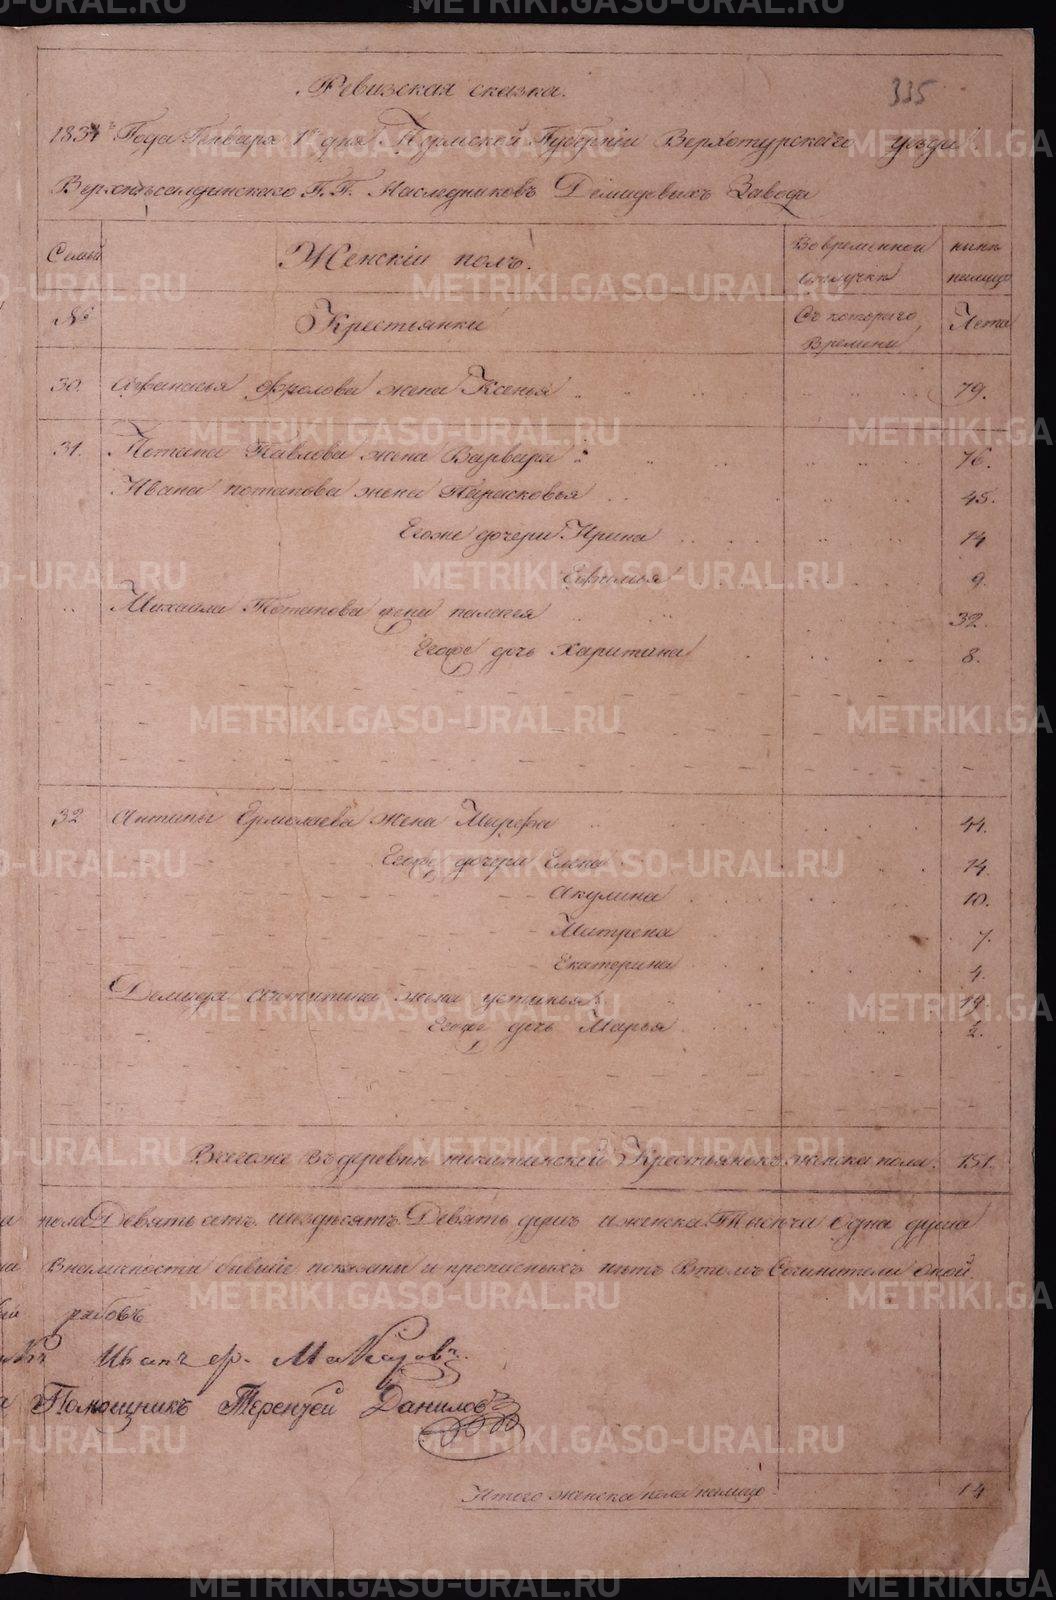 Ревизская сказка.
335
1834 Года Генваря 1го дня Пермской Губерніи Верхотурскаго уезда
Верхнесалдинскаго Г.Г. Наследниковъ Демидовыхъ Завода
Семьи
Женскій полъ.
Во временной отлучки
ныне налицо
№
Крестьянки
Съ котораго Времени
Лета
30. Афанасья Фролова жена Ксенья 79.
31. Потапа Павлова жена Варвара 76.
Ивана потапова жена Парасковья 45.
Егоже дочери Ирина 14
Евфимья 9.
Михаила Потапова жена 32.
Егоже дочь Харитина 8.
32 Антипы Ермолаева жена Марфа 44.
Егоже дочери Елена 14.
Акулина 10.
Матрена 7.
Екатерина 4.
Демида Антипина жена устинья 19.
Егоже дочь Марья 2.
Всегоже въ деревне никитинской Крестьянокъ женска пола. 151.
пола Девятьсотъ шездесятъ Девять душъ и женска Тысяча Одна душа
Вналичности бывшіе показаны и прописныхъ нетъ Втомъ Сочинители Оной.
рабовъ
Иванъ Макаровъ
Помощникъ Терентей Даниловъ
Итого женска пола налицо 14
METRIKI.GASO-URAL.RU